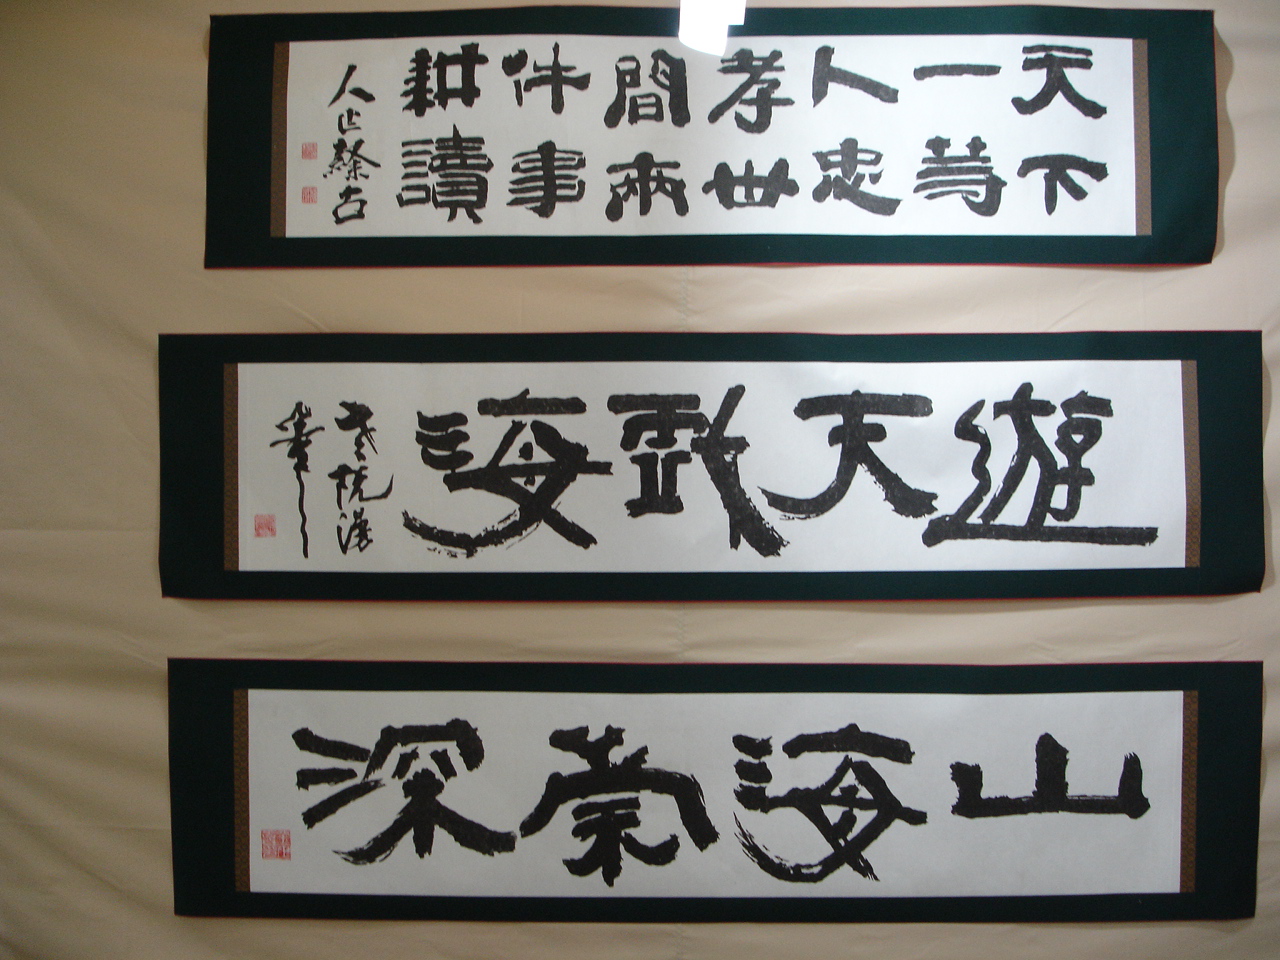 天下一等人忠孝世間兩件事耕讀
遊天戲海
老阮
山海崇深